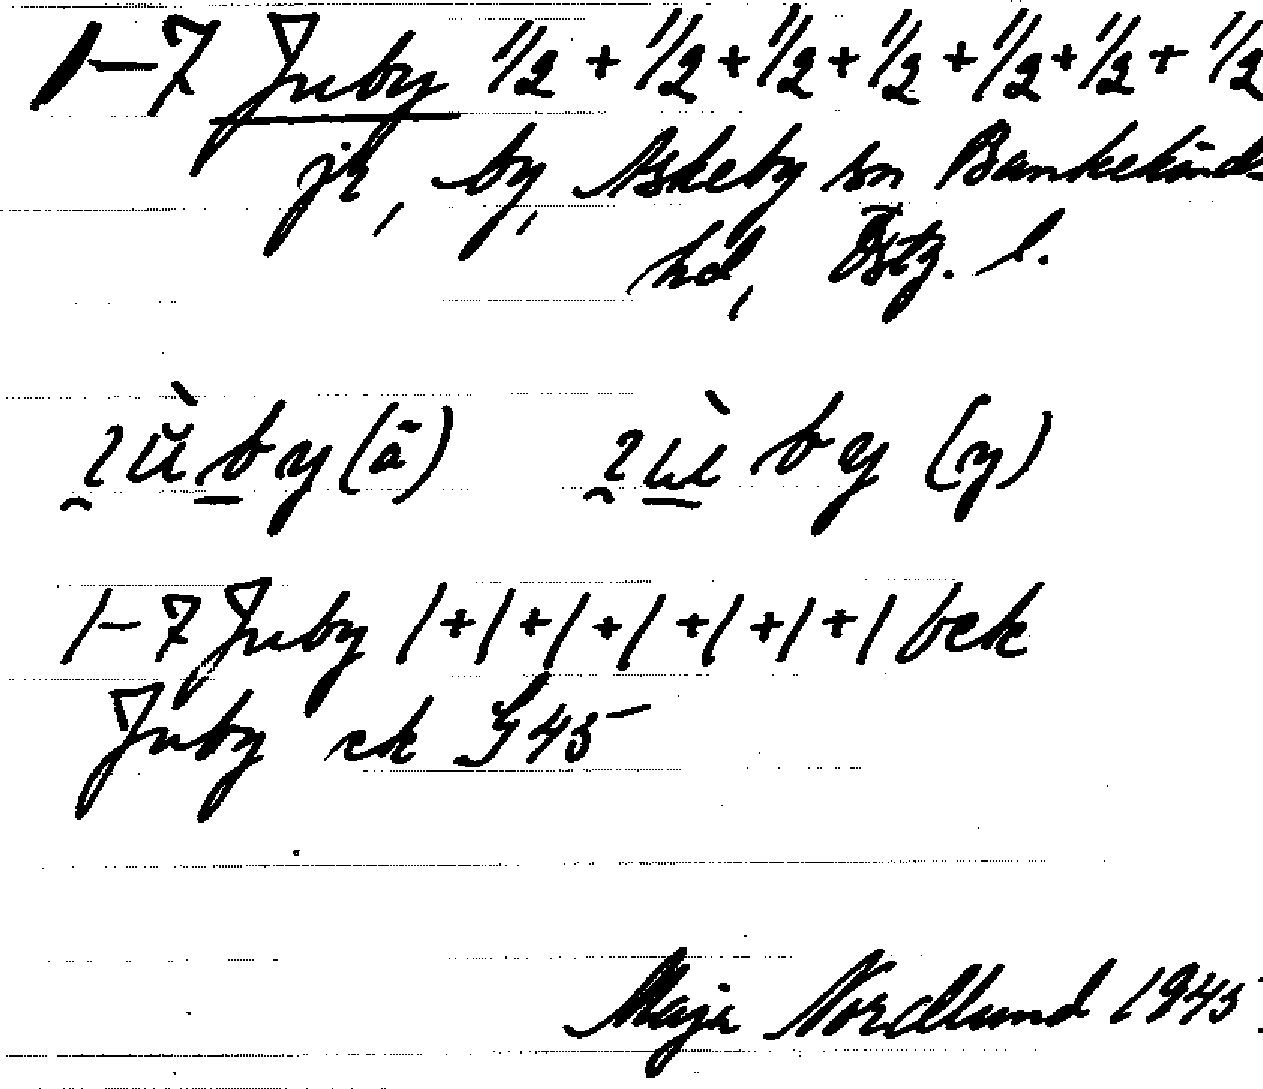 1–7 Juby ½ + ½ + ½ + ½ + ½ + ½ + ½
jk, by, Askeby sn Bankekinds
hd, Östg. l.
by (ä) by (y)
1–7 Juby 1+1+1+1+1+1+1 bek
Juby ek S45
Maja Nordlund 1945